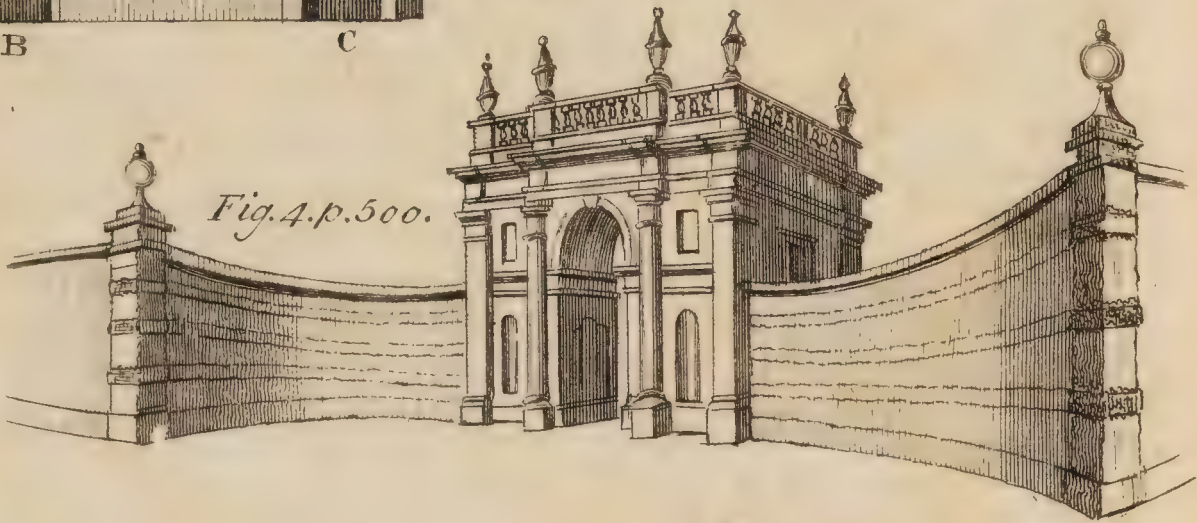 B C
Fig. 4. p. 500.